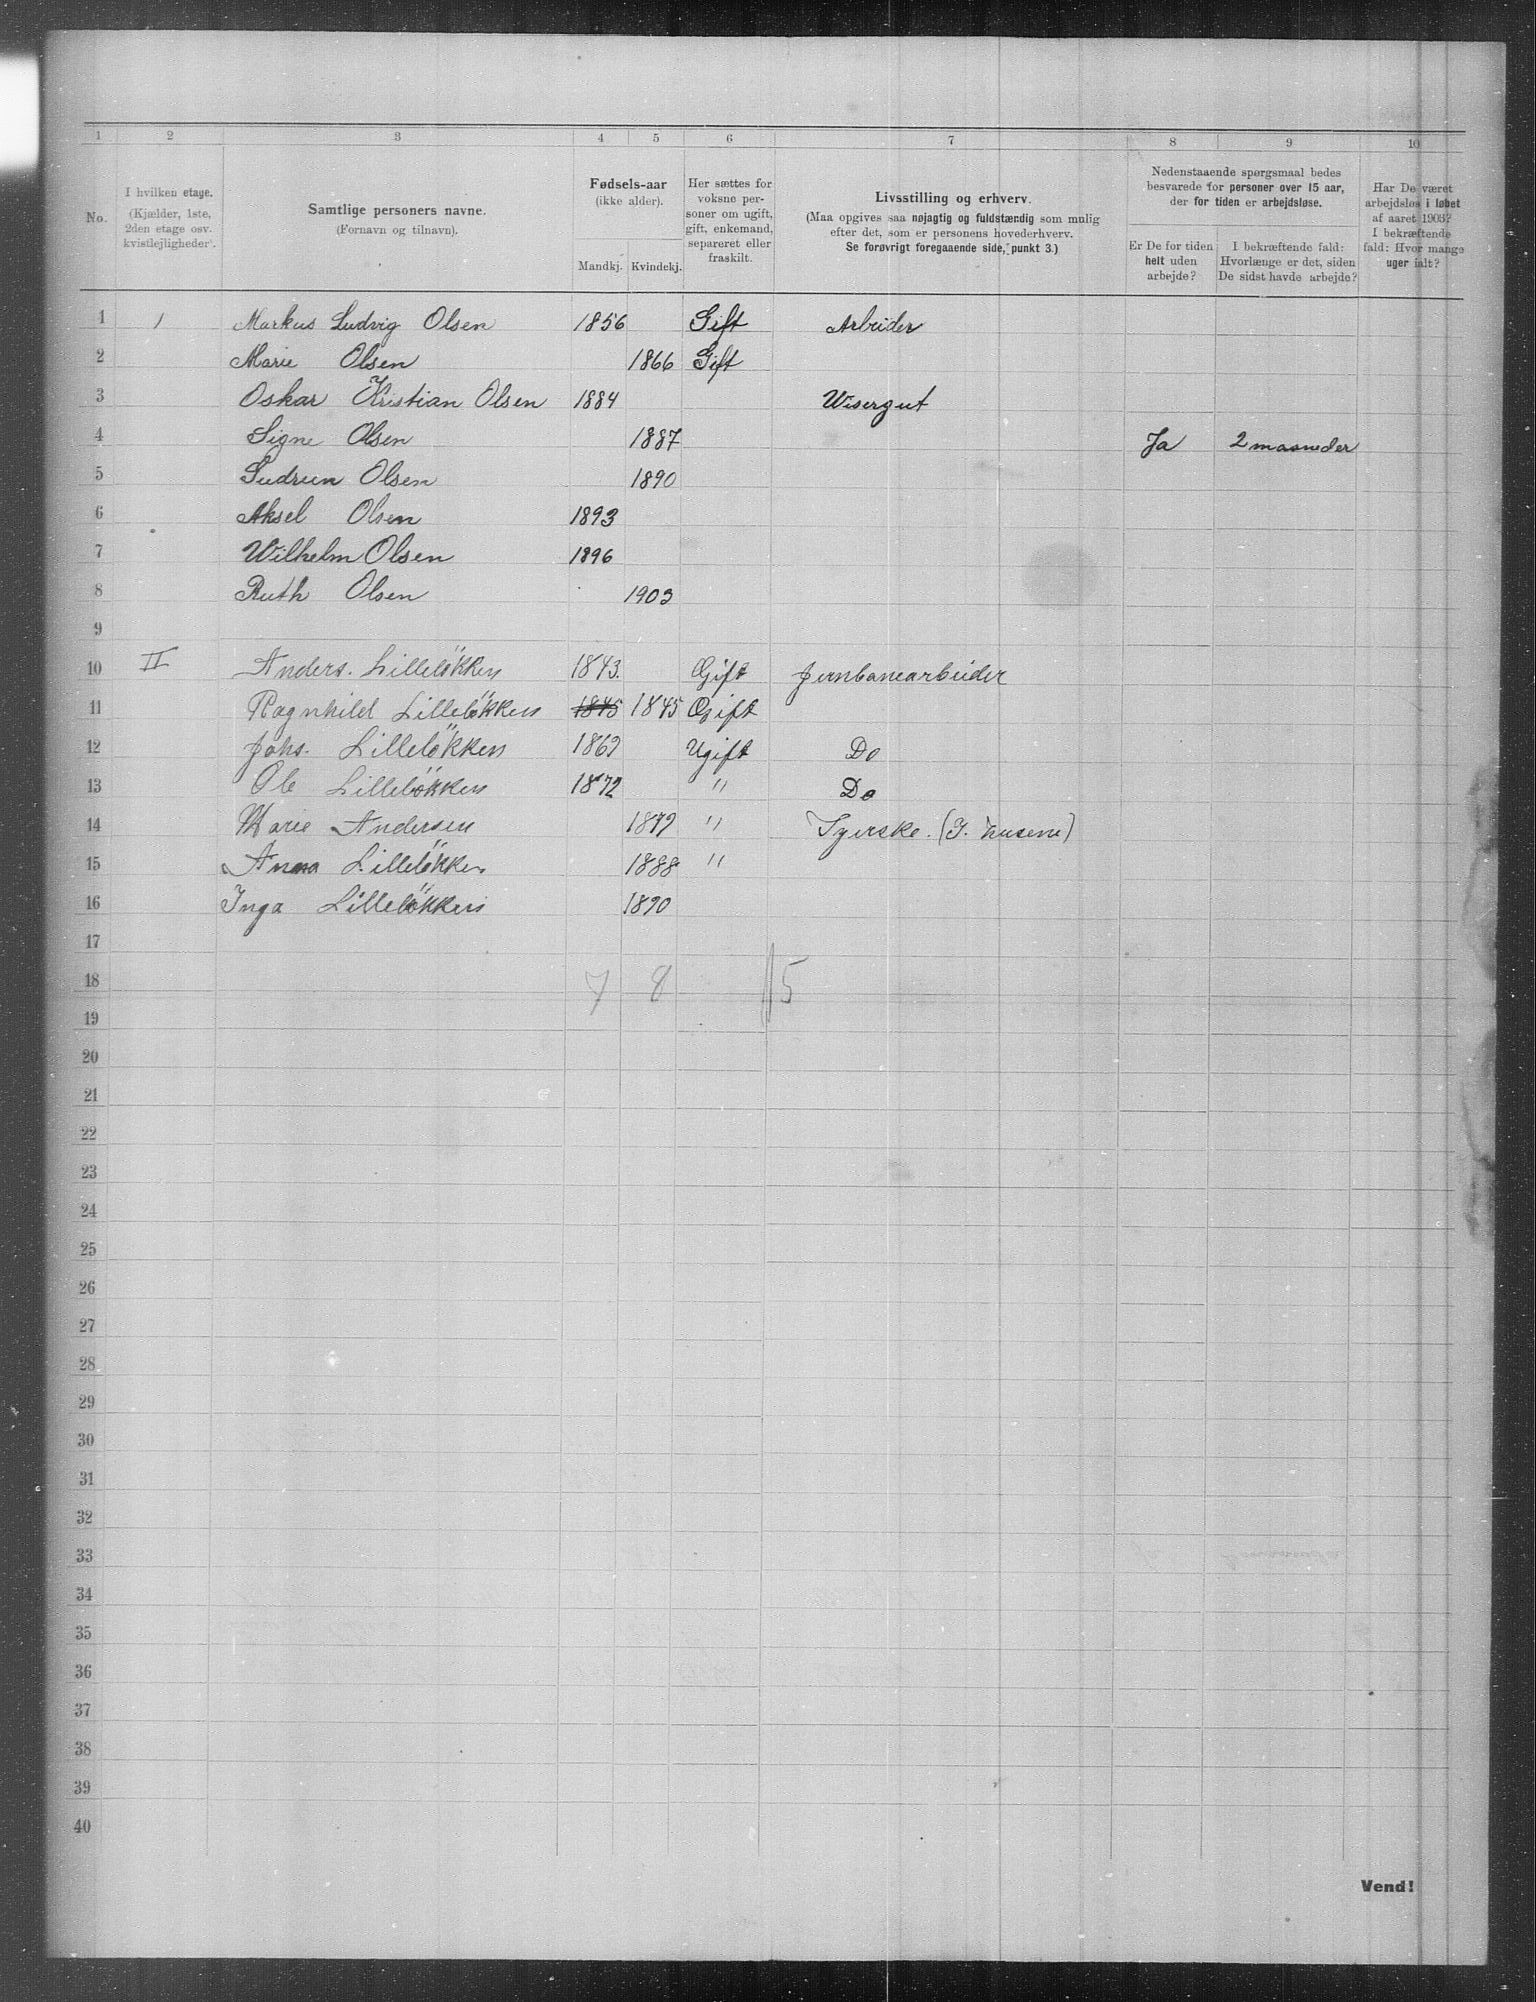 1 2 3 4 5 6 7 8 9 10
No.
I hvilken etage.
(Kjælder, 1ste,
2den etage osv.
kvistlejligheder).
Samtlige personers navne.
(Fornavn og tilnavn).
Fødsels-aar
(ikke alder).
Mandkj. Kvindekj.
Her sættes for
voksne per-
soner om ugift,
gift, enkemand,
separeret eller
fraskilt.
Livsstilling og erhverv.
(Maa opgives saa nøjagtig og fuldstændig som mulig
efter det, som er personens hovederhverv.
Se forøvrigt foregaaende side, punkt 3.)
Nedenstaaende spørgsmaal bedes
besvarede for personer over 15 aar,
der for tiden er arbejdsløse.
Er De for tiden
helt uden
arbejde?
I bekræftende fald:
Hvorlænge er det, siden
De sidst havde arbejde?
Har De været
arbejdsløs i løbet
af aaret 1903?
I bekræftende
fald: Hvor mange
uger ialt?
1 1 Markus Ludvig Olsen 1856 Gift Arbeider
2 Marie Olsen 1866 Gift
3 Oskar Kristian Olsen 1884 Wisergut
4 Signe Olsen 1887 Ja 2 maaneder
5 Gudrun Olsen 1890
6 Aksel Olsen 1893
7 Wilhelm Olsen 1896
8 Ruth Olsen 1903
9
10 II Anders. Lilleløkken 1843. Gift Jernbanearbeider
11 Ragnhild Lilleløkken 1845 1845 Gift
12 Johs. Lilleløkken 1869 Ugift Do
13 Ole Lilleløkken 1872 " Do
14 Marie Andersen 1879 " Syerske. (I. husene)
15 Anna Lilleløkken 1888 "
16 Inga Lilleløkken 1890
17
18 7 8 15
19
20
21
22
23
24
25
26
27
28
29
30
31
32
33
34
35
36
37
38
39
40
Vend!